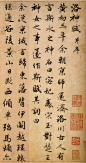 洛神賦 并序
黃初三年余朝京師還濟洛川古人有
言斯水之神名曰宓妃感宋玉對楚王
神女之事遂作斯賦其詞曰
余從京域言歸東藩背伊闕越轘轅
經通谷陵景山日既西傾車殆馬煩